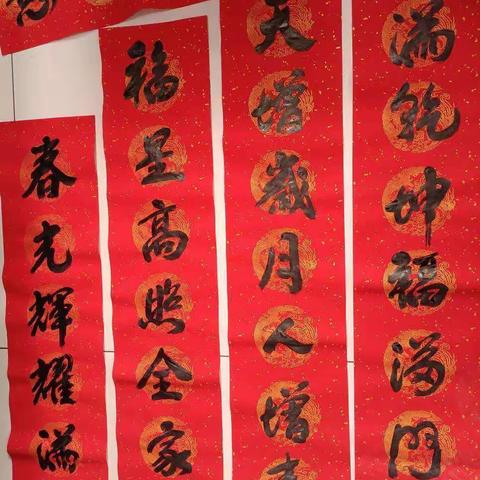 满乾坤福满門
天增歲月人增
福星高照全家
春光輝耀满